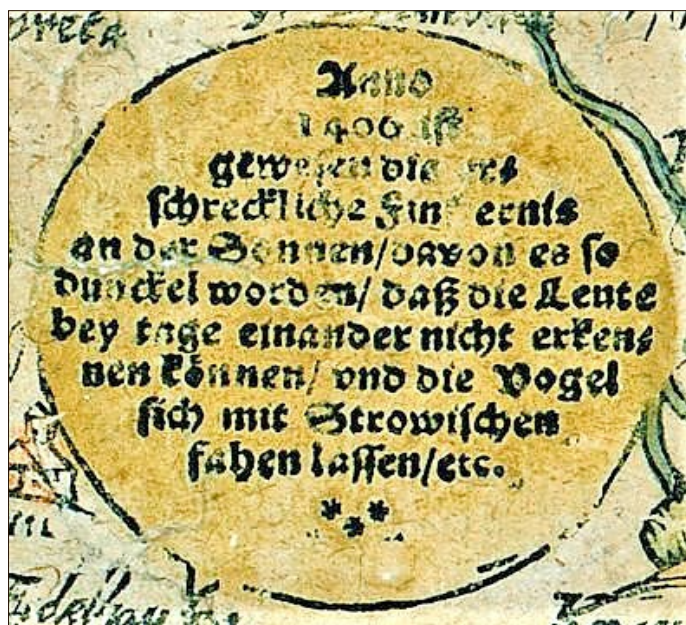 Anno
1406 ist
gewesen die
schreckliche
an der Sonnen/davon es so
dunckel worden/ daß die Leute
bey tage einander nicht erken⸗
nen können/ vnd die Vogel
sich mit Strowischen
fahen lassen/etc.